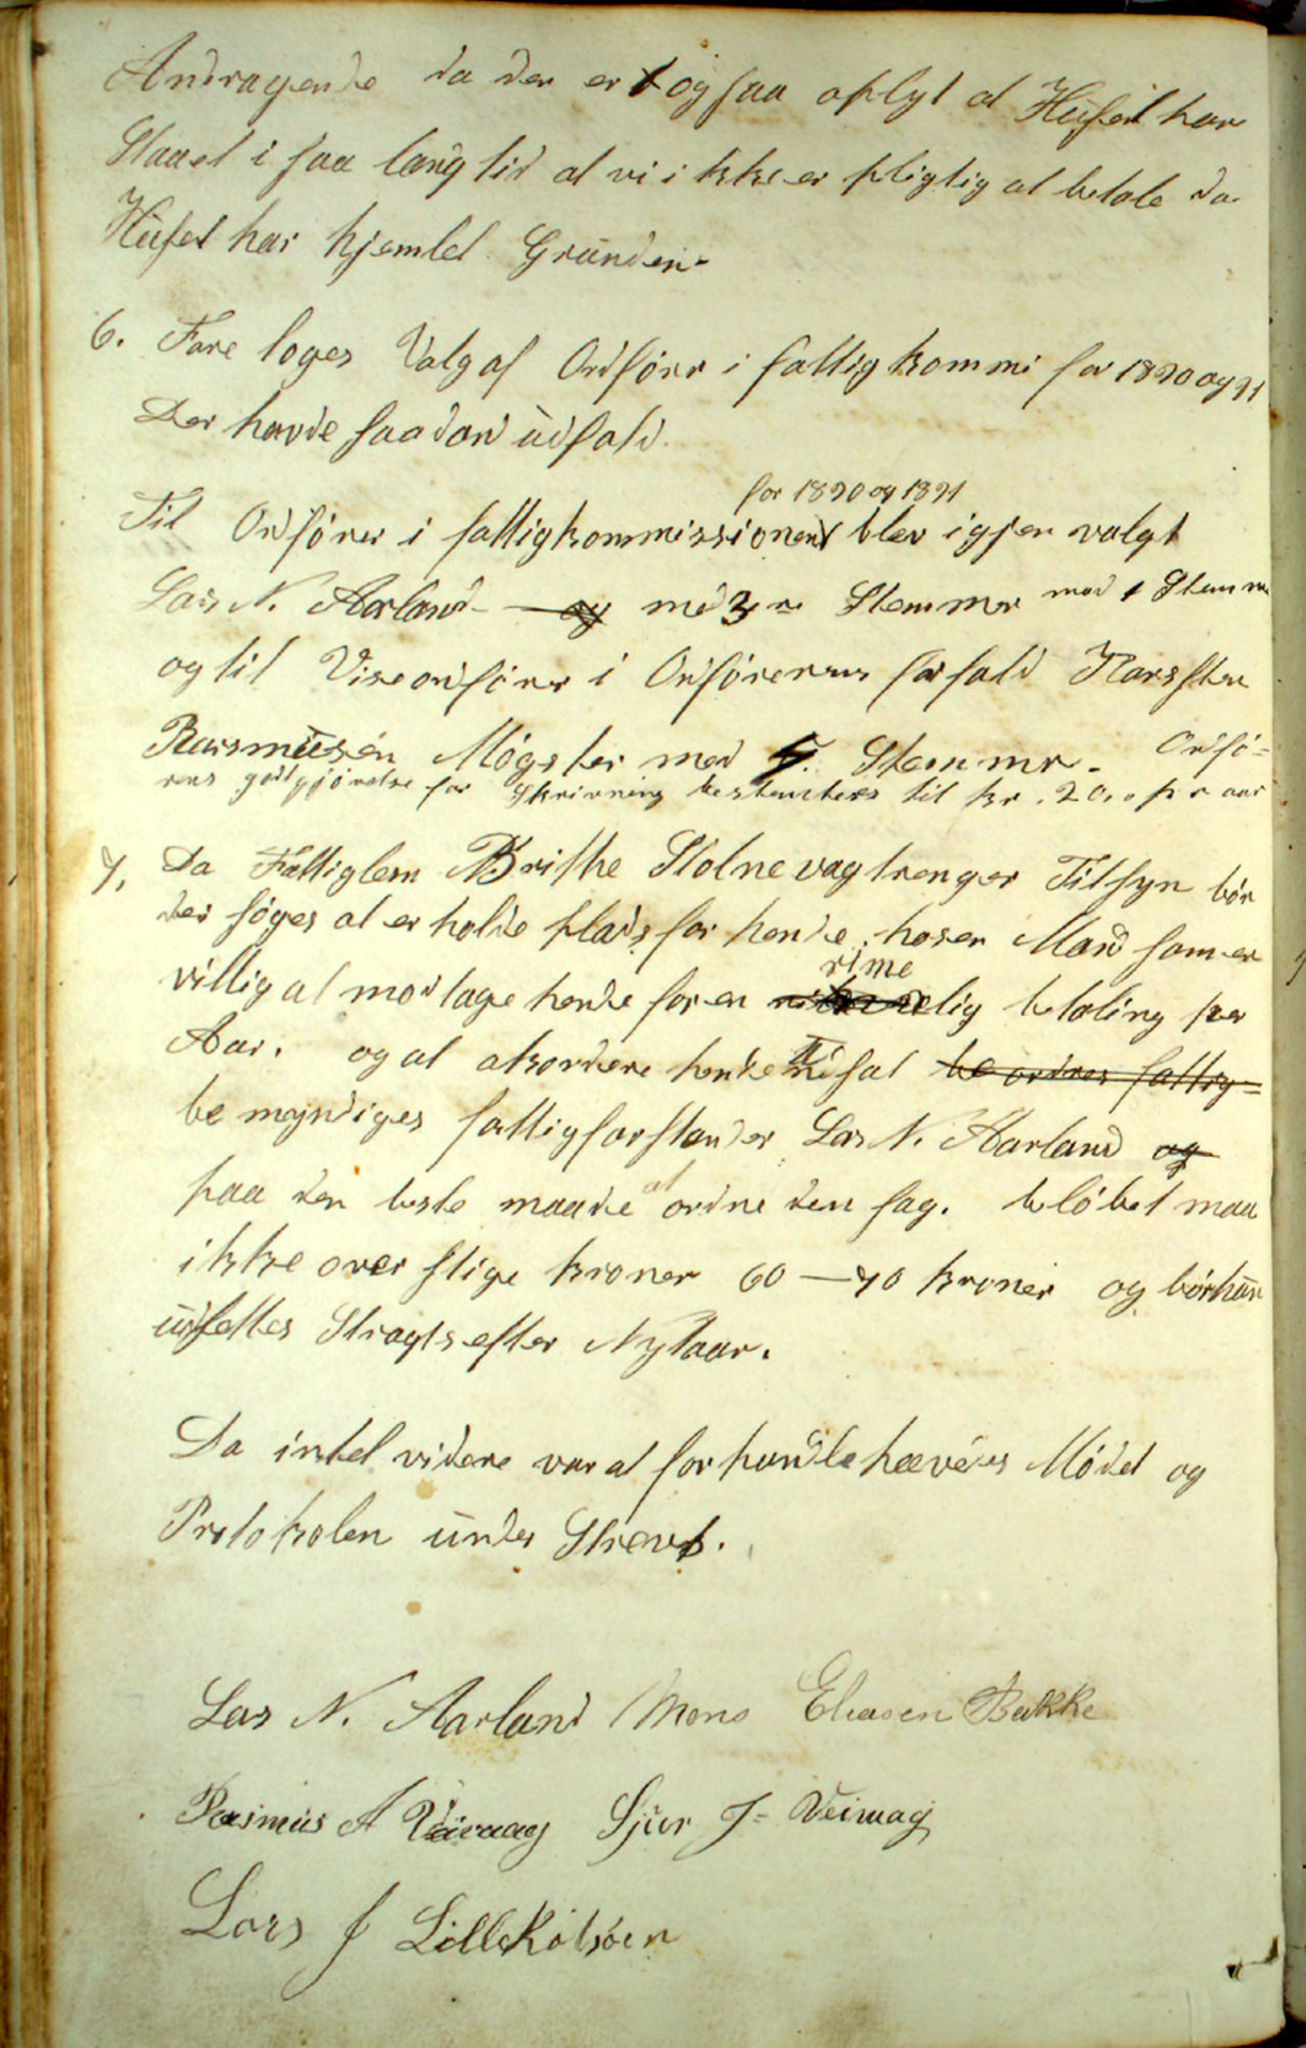 Andragende da der er ogsaa oplyst at Huset har
Staaet i saa lang tid at vi ikke er pligtig at betale da
Huset har hjemlet Grunden.
6. Fore toges Valg af Ordförer i fattigkommi for 1890 og 91
Der havde saadan udfald.
for 1890 og 1891
Til Ordförer i fattigkommissionen blev igjen valgt
Lars N. Aarland og med 3 re Stemmer mod 1 Stemme
og til Viseordförer i Ordförerens forfald Karsten
Rasmusen Mögster med Stemmer. Ordfö=
rens godtgjörelse for Skrivning bestemtes til kr. 20,, pr aar
7, Da Fattiglem Brithe Stolnevag trenger Tilsyn bör
der söges at erholde plads for hende hos en Mand som er
rime
villig at modtage hende for en lig betaling per
Aar. og at akordere hende ud sat be ordres fattig=
be myndiges fattigforstander Lars N. Aarland og
paa den beste maade at ordne den sag. belöbet maa
ikke over stige kroner 60 — 70 kroner og bör hun
udsettes Stragts efter Nytaar.
Da intet videre var at forhandle hævedes Mödet og
Protokolen under Skrevet.
Lars N. Aarland Mons Eliasen Bakke
Rasmus A Veivaag Sjur J= Veivaag
Lars J Lille Kalsöen